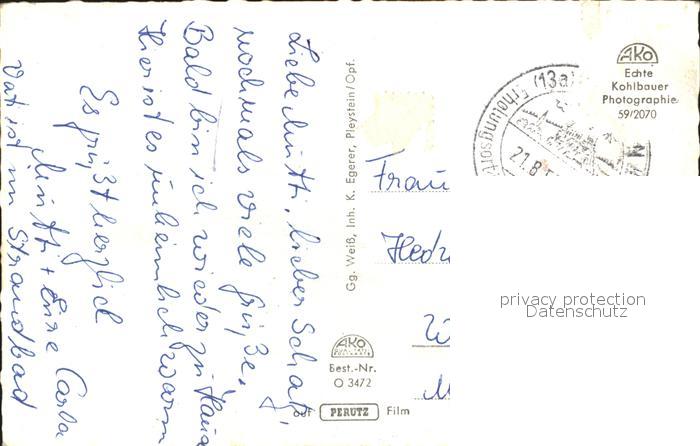 Liebe Mutti, lieber Schatz,
nochmals viele Grüße.
Bald bin ich wieder zu Hause
Hier ist es unheimlich warm
Es grüßt herzlich
Mutti + Eure Carla
Vati ist im Strandbad
Gg. Weiß, Inh. K. Egerer, Pleystein/Opf.
AKO
Best.-Nr.
O 3472
auf PERUTZ Film
Frau
Hedw
W
M
(13a)
Erholungsort
21.8.5
AKO
Echte
Kohlbauer
Photographie
59/2070
privacy protection
Datenschutz